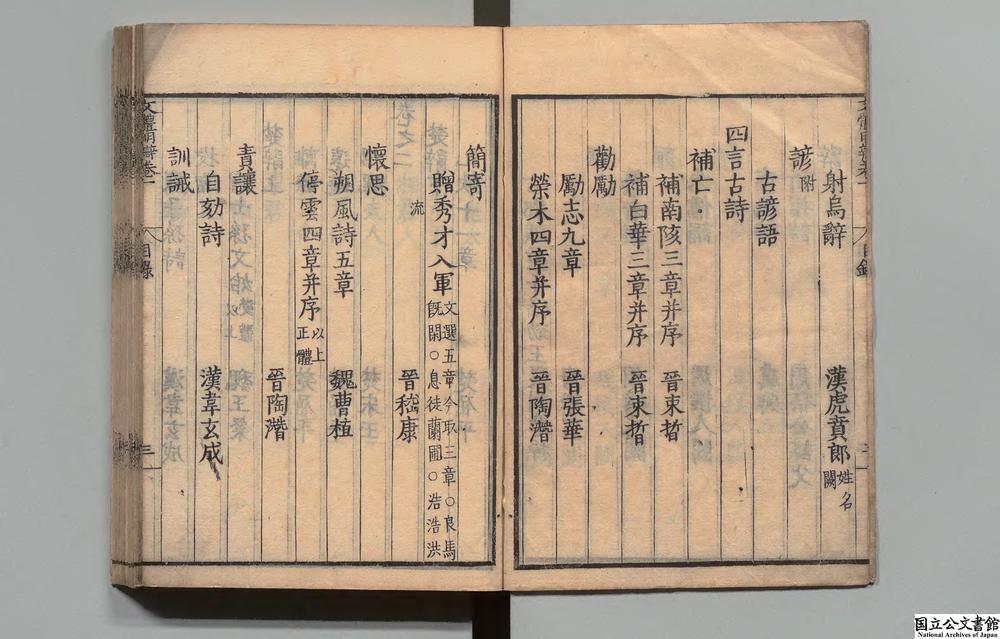 射烏辭 漢虎賁郎 姓名闕
諺附
古諺語
四言古詩
補亡
補南陔三章并序 晉束晳
補白華三章并序 晉束晳
勸勵
勵志九章 晉張華
榮木四章并序 晉陶潛
簡寄
贈秀才入軍 文選五章今取三章○良馬既閑○息徒蘭圃○浩浩洪流
晉嵇康
懷思
朔風詩五章 魏曹植
停雲四章并序 以上正體
晉陶潛
責讓
自劾詩 漢韋玄成
訓誡
文體明辯卷一 目錄 三
国立公文書館
National Archives of Japan